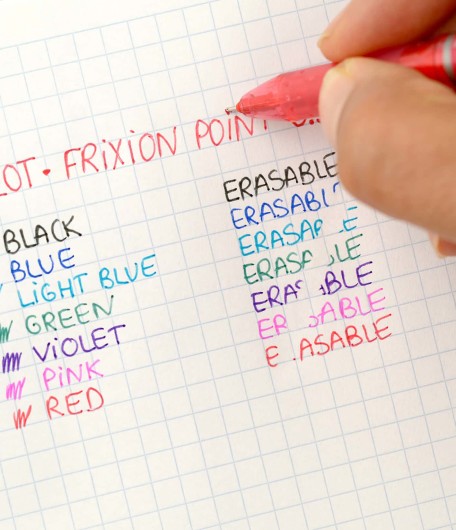 LOT • FRiXiON POINT
BLACK
BLUE
LiGHT BLUE
GREEN
ViOLET
PiNK
RED
ERASABLE
ERASABL
ERASA E
ERAS LE
ERA BLE
ER ABLE
E ASABLE